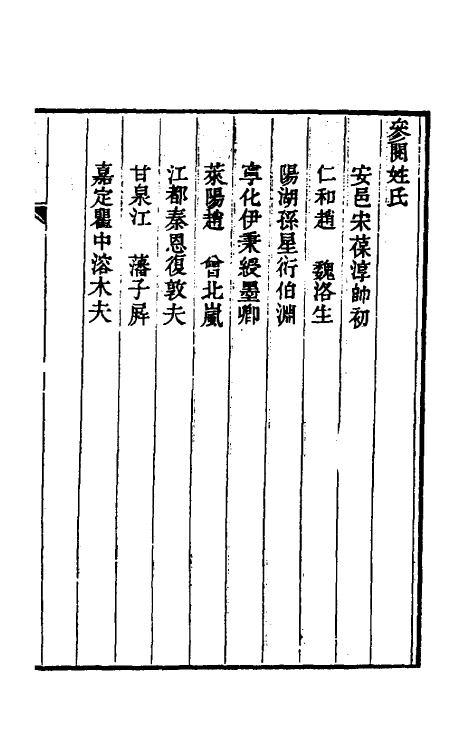 參閱姓氏
安邑宋葆淳帥初
仁和趙　魏洛生
陽湖孫星衍伯淵
寧化伊秉綬墨卿
萊陽趙　曾北嵐
江都秦恩復敦夫
甘泉江　藩子屏
嘉定瞿中溶木夫